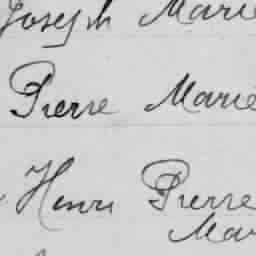 Joseph Marie
Pierre Marie
Henri Pierre
Mar